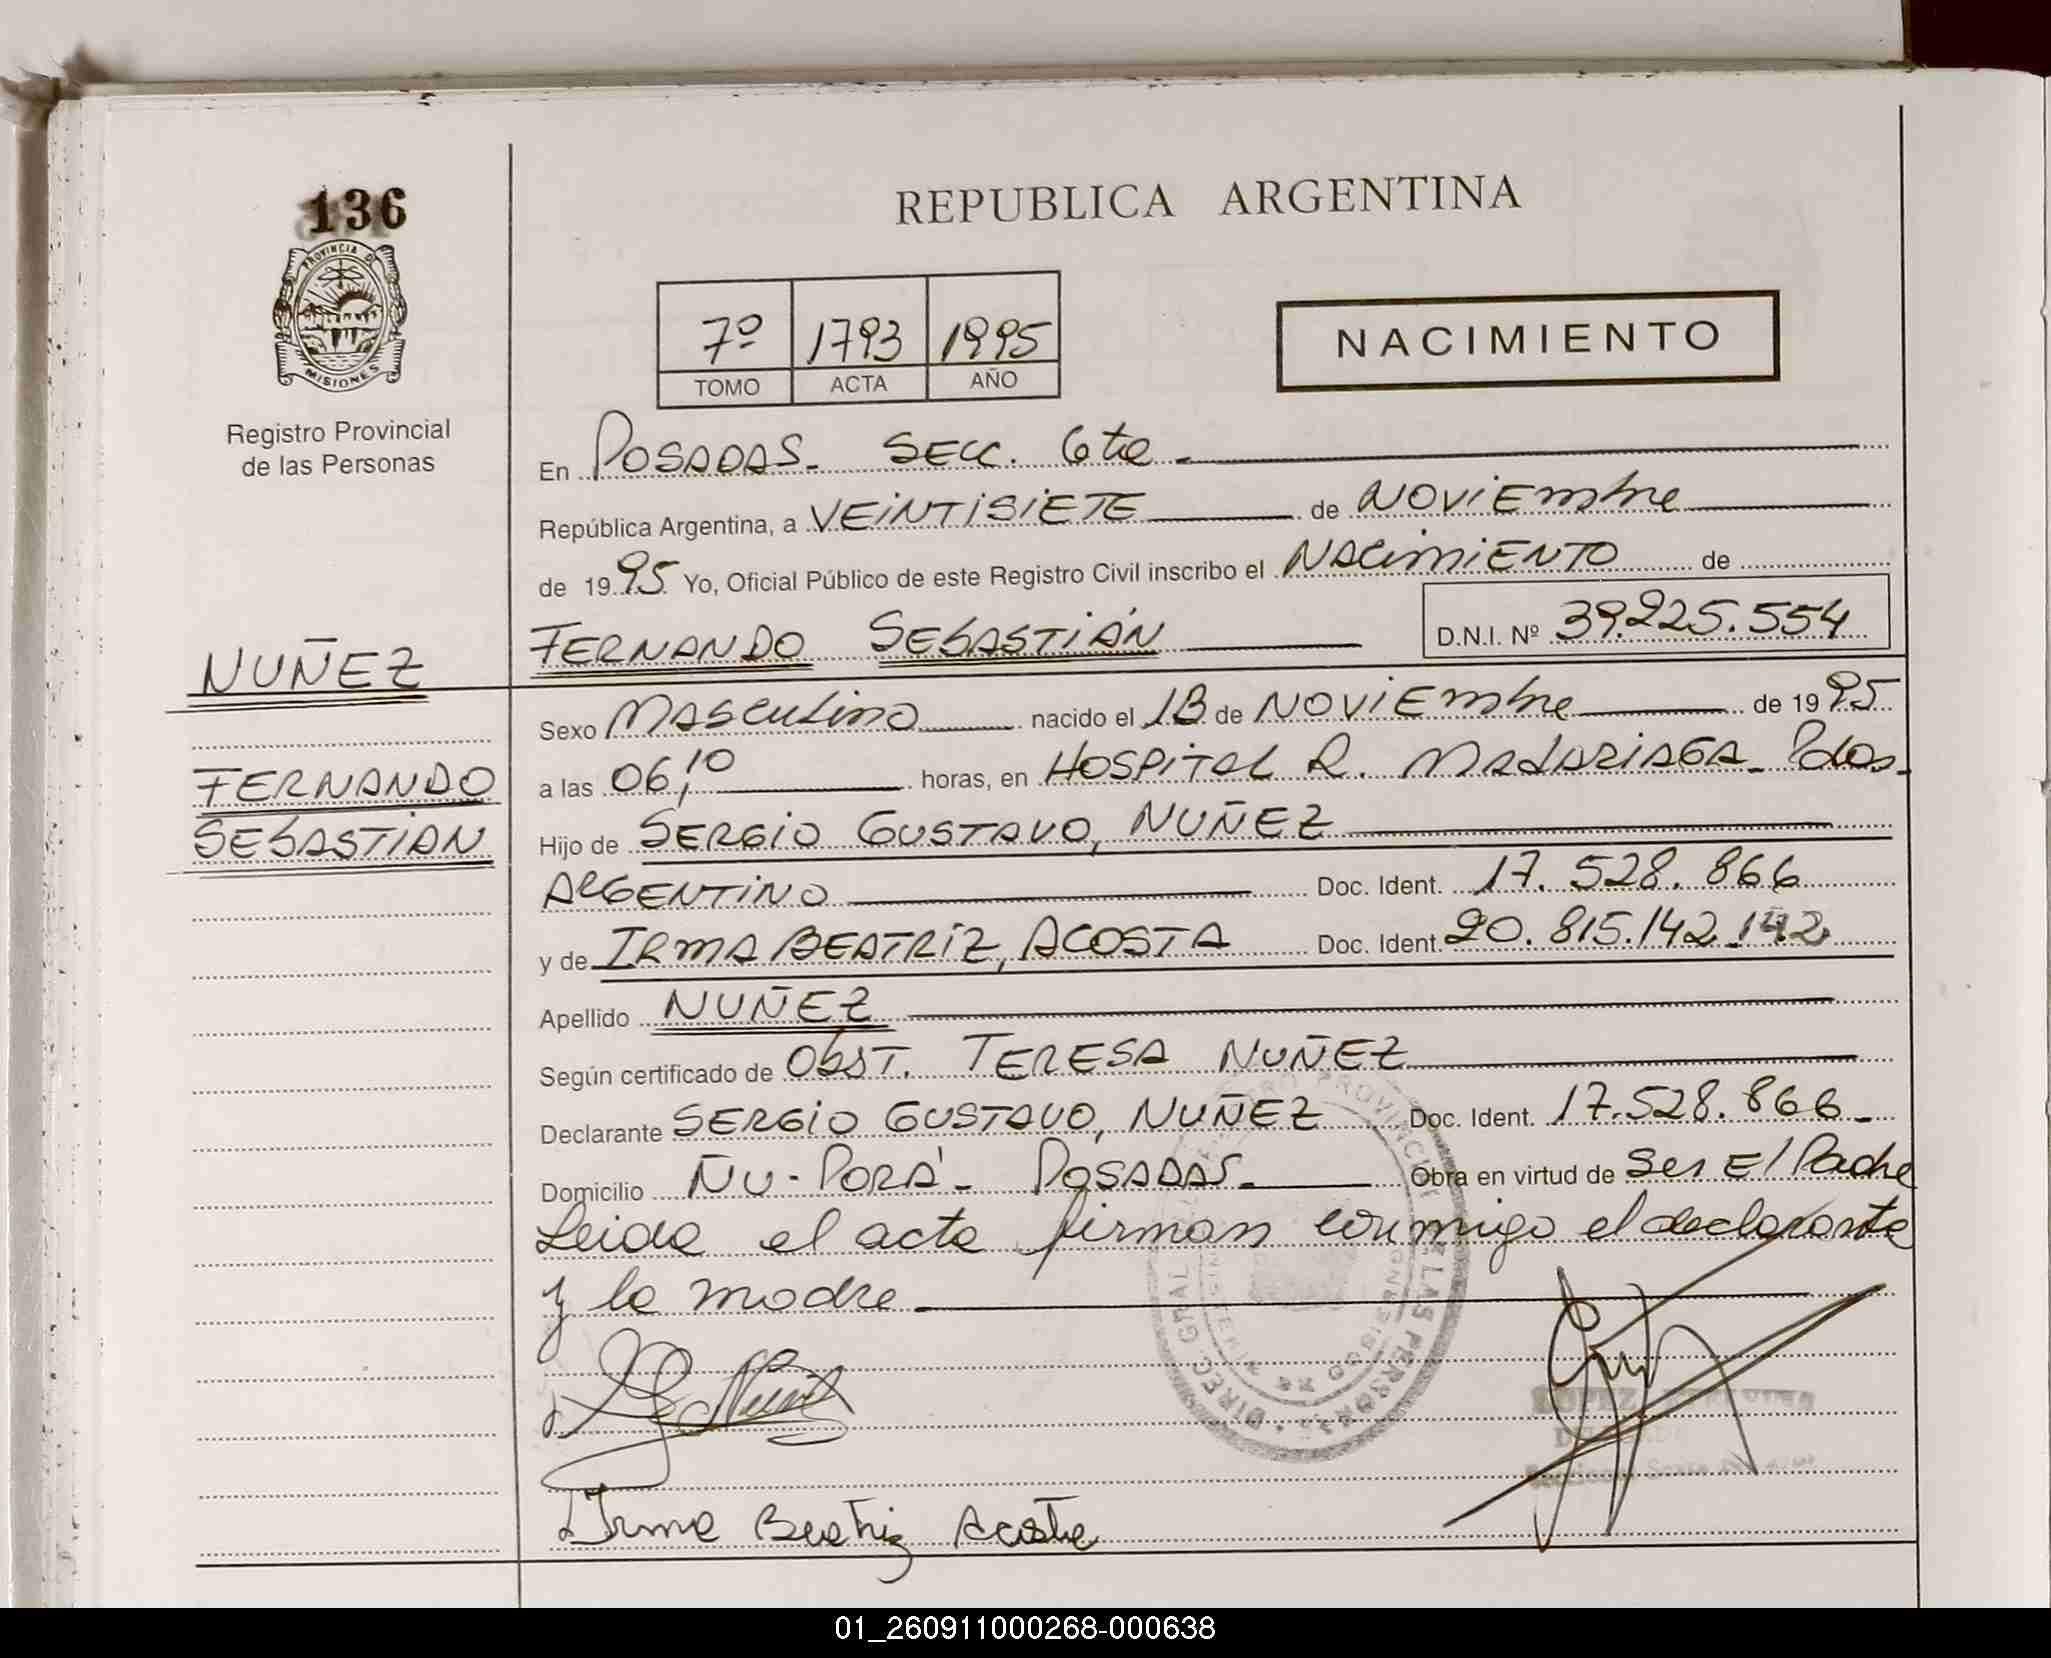 136
PROVINCIA D
MISIONES
Registro Provincial
de las Personas
REPUBLICA ARGENTINA
7º 1793 1995
TOMO ACTA AÑO
NACIMIENTO
En POSADAS. SECC. 6ta.
República Argentina, a VEINTISIETE de NOVIEmbre
de 1995 Yo, Oficial Público de este Registro Civil inscribo el NACimiENTO de
FERNANDO SEBASTIÁN D.N.I. Nº 39.225.554
NUÑEZ
FERNANDO
SEBASTIAN
Sexo MASCULino nacido el 13 de NOVIEmbre de 1995
a las 06,10 horas, en HOSPITAL R. MADARIAGA. Pdas.
Hijo de SERGIO GUSTAVO, NUÑEZ
ARGENTINO Doc. Ident. 17.528.866
y de IRMA BEATRIZ, ACOSTA Doc. Ident. 20.815.142.142
Apellido NUÑEZ
Según certificado de ObST. TERESA NUÑEZ
Declarante SERGIO GUSTAVO, NUÑEZ Doc. Ident. 17.528.866.
Domicilio ÑU-PORÁ. POSADAS. Obra en virtud de Ser El Padre
Leida el acta firman conmigo el declarante
y la madre
Irma Beatriz Acosta
01_260911000268-000638